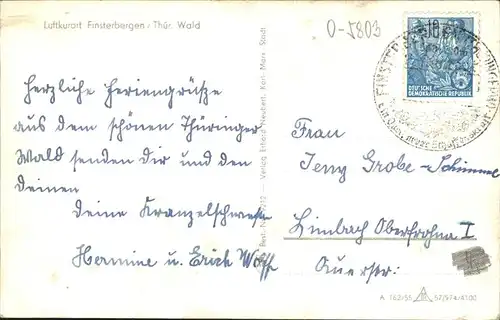 Luftkurort Finsterbergen / Thür. Wald
O-5803
Herzliche Feriengrüße
aus dem schönen Thüringer
Wald senden dir und den
deinen
deine Kranzelschwester
Hermine u. Erich Wolff
Verlag Erhard Neubert, Karl-Marx-Stadt
10
DEUTSCHE
DEMOKRATISCHE REPUBLIK
FINSTERBERGEN
Frau
Jeny Grobe-Schimmel
Limbach Oberfrohna I
Querstr:
A 162/55 57/974/4100